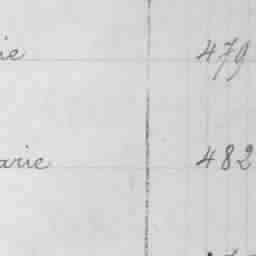 ie 479
arie 482